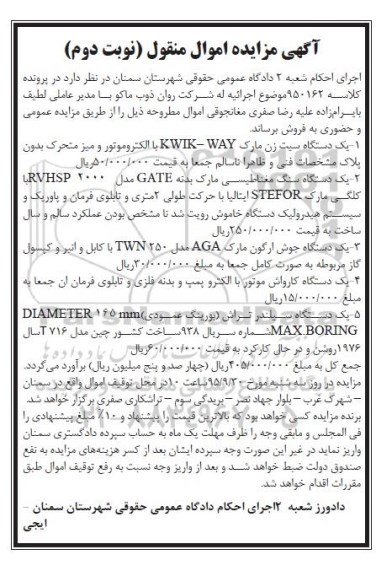 آگهی مزایده اموال منقول (نوبت دوم)
اجرای احکام شعبه ۲ دادگاه عمومی حقوقی شهرستان سمنان در نظر دارد در پرونده
کلاسه ۹۵۰۱۶۲موضوع اجرائیه له شرکت روان ذوب ماکو با مدیر عاملی لطیف
بایرام‌زاده علیه رضا صفری مغانجوقی اموال مطروحه ذیل را از طریق مزایده عمومی
و حضوری به فروش برساند.
۱-یک دستگاه سیت زن مارک KWIK– WAY با الکتروموتور و میز متحرک بدون
پلاک مشخصات فنی و ظاهرا ناسالم جمعا به قیمت ۵۰/۰۰۰/۰۰۰ریال
۲-یک دستگاه سنگ مغناطیسی مارک بدنه GATE مدل RVHSP ۲۰۰۰با
کلگی مارک STEFOR ایتالیا با حرکت طولی ۲متری و تابلوی فرمان و پاوریک و
سیستم هیدرولیک دستگاه خاموش رویت شد نا مشخص بودن عملکرد سالم و سال
ساخت به قیمت ۲۵۰/۰۰۰/۰۰۰ریال
۳-یک دستگاه جوش ارگون مارک AGA مدل TWN ۲۵۰ با کابل و انبر و کپسول
گاز مربوطه به صورت کامل جمعا به مبلغ ۳۰/۰۰۰/۰۰۰ریال
۴-یک دستگاه کارواش موتور با الکترو پمپ و بدنه فلزی و تابلوی فرمان آن جمعا به
مبلغ ۱۵/۰۰۰/۰۰۰ریال
۵-یک دستگاه سیلندر تراش (بورینگ عمودی)DIAMETER ۱۶۵ mm
MAX BORINGشماره سریال ۹۳۸ساخت کشور چین مدل T۷۱۶سال
۱۹۷۶روشن و در حال کارکرد به قیمت ۶۰/۰۰۰/۰۰۰ریال
جمع کل به مبلغ ۴۰۵/۰۰۰/۰۰۰ریال (چهار صد و پنج میلیون ریال) برآورد می‌گردد.
مزایده در روز سه شنبه مورخ ۹۵/۹/۳۰ساعت ۱۰در محل توقیف اموال واقع در سمنان
–شهرگ غرب –بلوار جهاد نصر –بریدگی سوم –تراشکاری صفری برگزار خواهد شد.
برنده مزایده کسی خواهد بود که بالاترین قیمت را پیشنهاد و ۱۰٪ مبلغ پیشنهادی را
فی المجلس و مابقی وجه را ظرف مهلت یک ماه به حساب سپرده دادگستری سمنان
واریز نماید در غیر این صورت وجه سپرده ایشان بعد از کسر هزینه‌های مزایده به نفع
صندوق دولت ضبط خواهد شد و بعد از واریز وجه نسبت به رفع توقیف اموال طبق
مقررات اقدام خواهد شد.
دادورز شعبه ۲اجرای احکام دادگاه عمومی حقوقی شهرستان سمنان -
ایجی